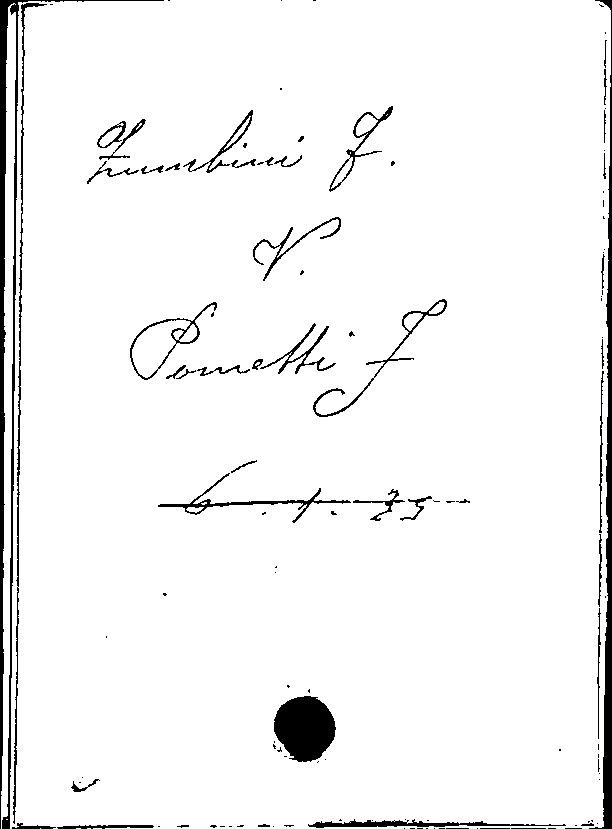 Zumbini F.
V.
Pometti F
6.1.35